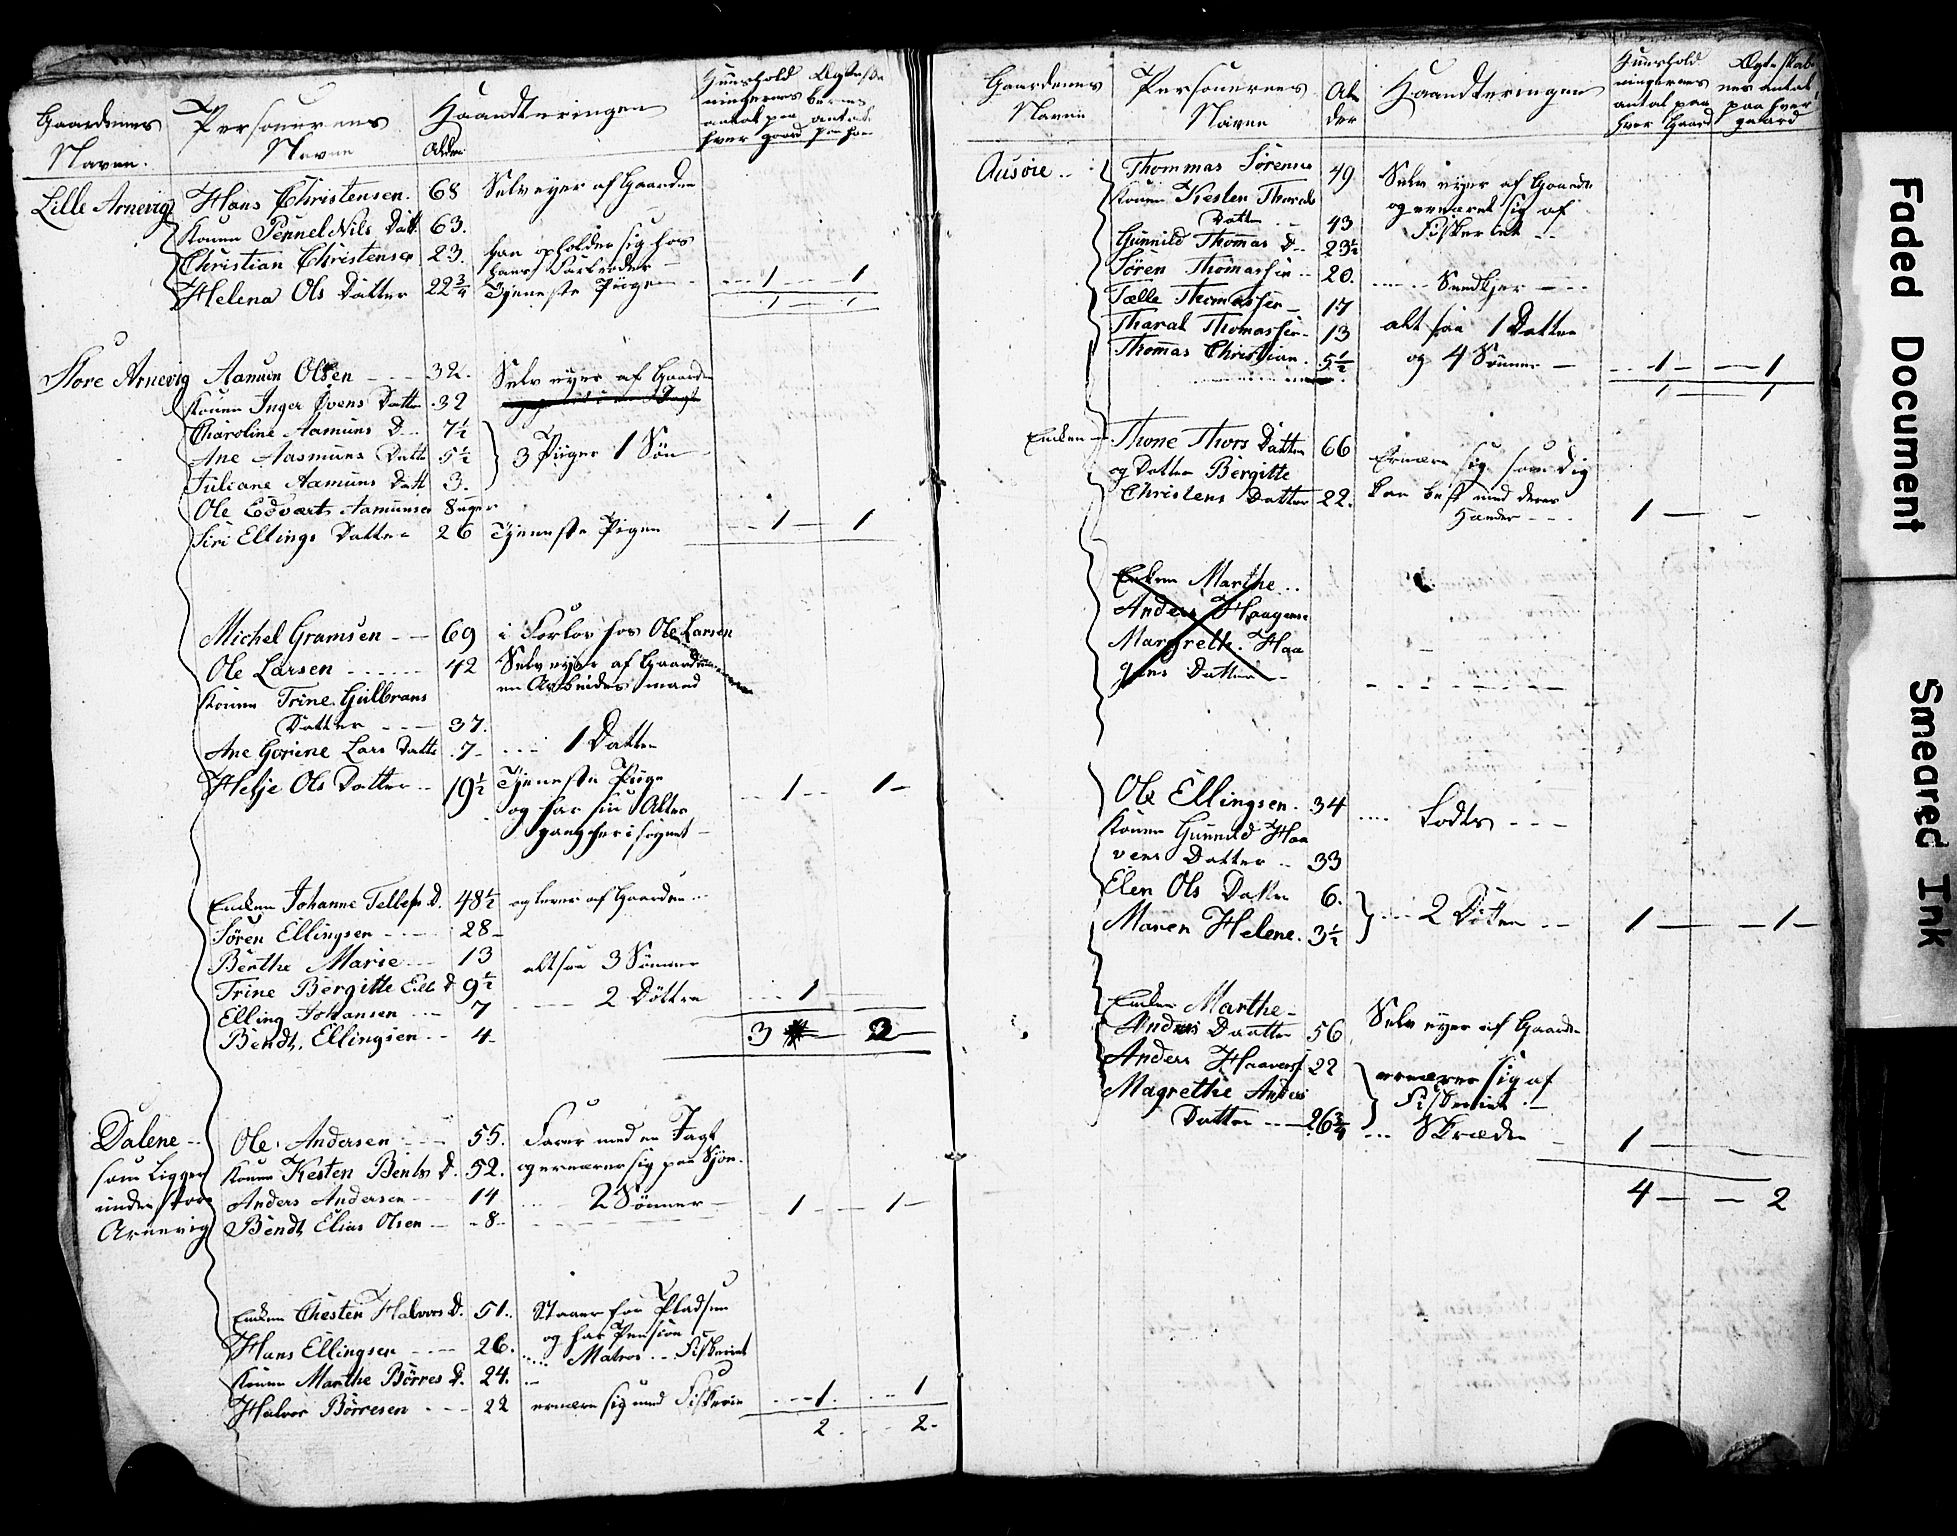 Gaardenes Navne.
Personernes Navne
Alder
Haandteringen
Huushold ningernes antal paa hver gaard
Lille Arnevig
Hans Christensen. 68 Selv eyer af Gaarden
Konen Pernel Nils Datt. 63.
Christian Christensen 23. han opholder sig hos
hans
Helena Ols Datter 22 3/4 Tjeneste Pigen 1 1
1 1
Store Arnevig
Aamun Olsen 32. Selv eyer af Gaarden
Konen Inger Ovens Datter 32
Charoline Aamuns D. 7 1/2
Ane Aasmuns Datt 5 1/2 3 Piger 1 Søn
Juliane Aamuns Datt 3.
Ole Edvart Aamunsen 8 uger
Siri Ellings Datter 26 Tjeneste Pigen 1 1
Michel Gramsen 69 i Forlov hos Ole Larsen
Ole Larsen 42 Selv eyer af Gaarden
en Arbeidsmand
Konen Trine Gulbrans
Datter 37.
Ane Gorine Lars Datt 7 1 Datter
Helje Ols Datter 19 1/2 Tjeneste Pige 1 1
og har sin
Enken Johanne Tellefs D. 48 1/2 og lever af Gaarden
Søren Ellingsen 28
Benthe Marie 13 altsaa 3 Sønner
Trine Bergitte Ell D 9 1/2 2 Døttre 1
Elling Johansen 7
Bendt Ellingsen 4 3 2
Dalene
som Ligger
under Store
Arnevig
Ole Andersen 55. Farer med en Jagt
Konen Kesten Bents D. 52. og ernærer sig paa Sjøn.
Anders Andersen 14 2 Sønner 1 1
Bendt Elias Olsen 8
Enken Chesten Halvors D. 51. Staaer for Pladsen
og har Pension
Hans Ellingsen 26. Matros Fiskeriet
Konen Marthe Børres D. 24.
Halvor Børresen 22 ernære sig med Fiskerie 1 1
2 2
Gaardenes Navne
Personernes Navne
Al der
Haandteringen
Huushold ningernes antal paa hver Gaard
Ægteskab nes antal paa hver gaard
Ausøie
Thommas Sørens 49 Selv eyer af Gaarden
Konen Kesten Tharals og ernæret sig af
Datter 43 Fiskeriet
Gunnild Thomas D. 23 1/2
Søren Thomassen 20.
Tælle Thomassen 17
Tharal Thomassen 13 alt saa 1 Datter
Thomas Christian 5 1/2 og 4 Sønner 1 1
1 1
Enken
Thone Thors Datter 66 Ernære sig som dig
og Datter Bergitte kan best med deres
Christens Datter 22. Hænder 1
Enken Marthe
Anders Haagens
Margreth. Haa
gens Datter
Ole Ellingsen 34 Lodts
Konen Gunnild Haa
vens Datter 33
Elen Ols Datter 6.
Maren Helene 3 1/2 2 Døtre 1 1
Enken Marthe
Anders Daatter 56 Selv eyer af Gaarden
Anders Haavers 22 ernærer sig af
Magrethe Anders Fiskeriet
Datter 26 3/4 Skræder 1
4 2
Faded Document
Smeared Ink